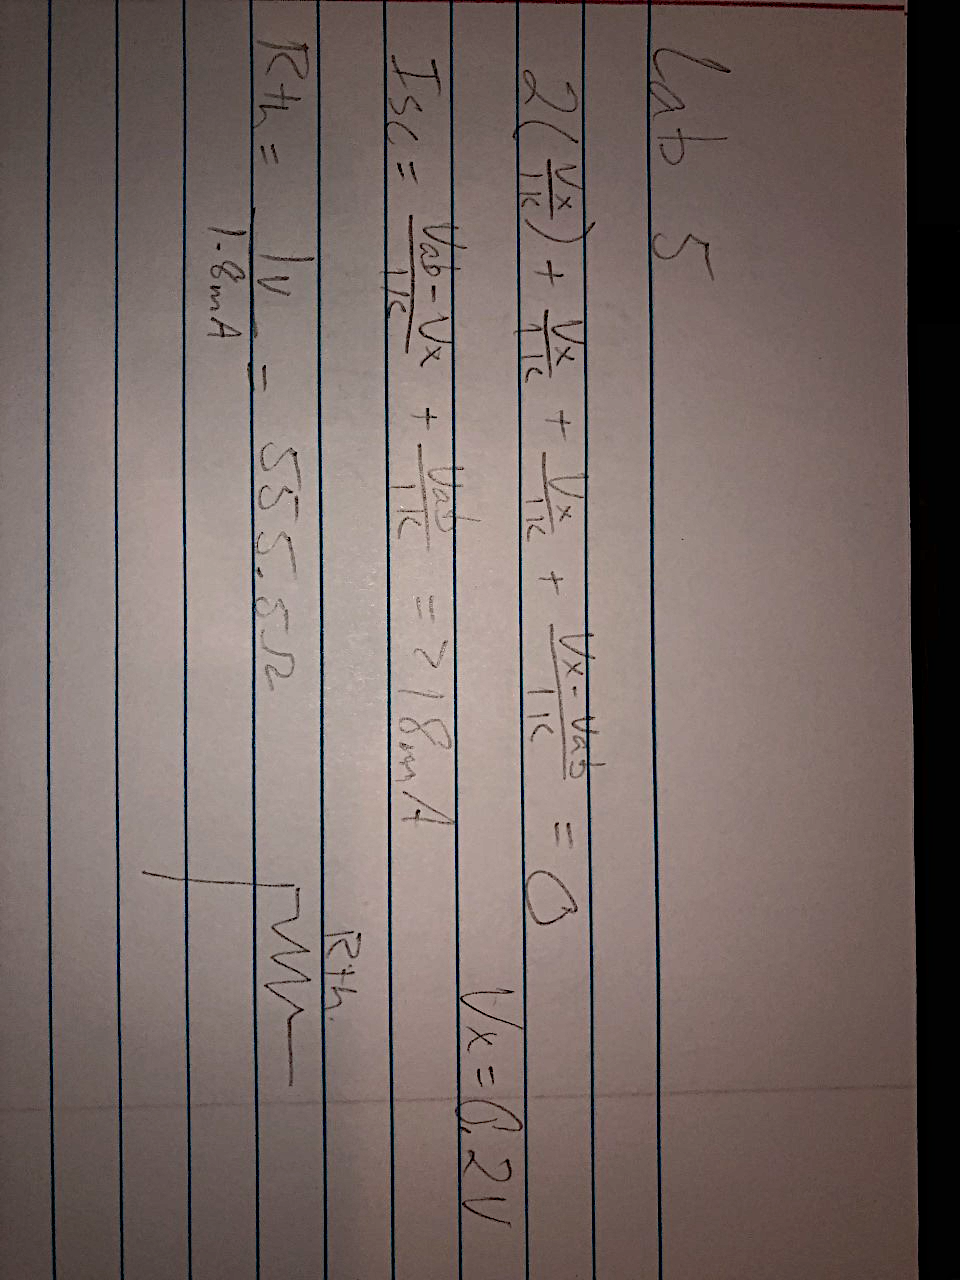 Lab 5
2(Vx/1k) + Vx/1k + Vx/1k + Vx-Vab/1k = 0
Vx = 0.2V
Isc = Vab-Vx/1k + Vab/1k => 1.8mA
Rth = 1V/1.8mA = 555.5Ω
Rth